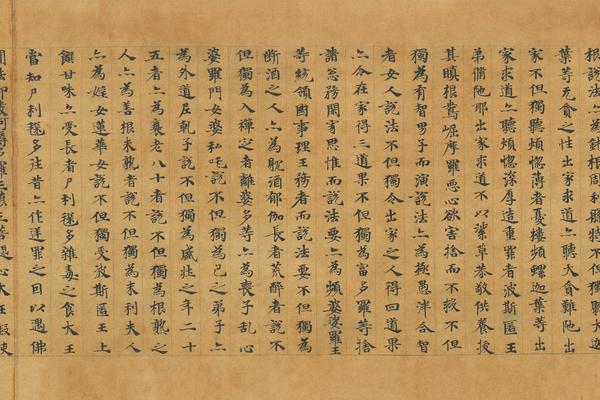 根說法亦為鈍根周利槃特不但獨聽大迦
葉等无貪之性出家求道亦聽大貪難陁出
家不但獨聽煩惱薄者憂樓頻螺迦葉等出
家求道亦聽煩惱深厚造重罪者波斯匿王
弟脩陁耶出家求道不以莎草恭敬供養拔
其瞋根鴦崛摩羅惡心欲害捨而不救不但
獨為有智男子而演說法亦為極愚泮合智
者女人說法不但獨令出家之人得四道果
亦令在家得三道果不但獨為富多羅等捨
諸怱務閑寂思惟而說法要亦為頻婆娑羅王
等統領國事理王務者而說法要不但獨為
斷酒之人亦為耽酒郁伽長者荒醉者說不
但獨為入禪定者離婆多等亦為喪子亂心
婆羅門女婆私吒說不但獨為己之弟子亦
為外道尼乾子說不但獨為盛壯之年二十
五者亦為衰老八十者說不但獨為根熟之
人亦為善根未熟者說不但獨為末利夫人
亦為婬女蓮華女說不但獨受波斯匿王上
饌甘味亦受長者尸利毱多雜毒之食大王
當知尸利毱多往昔亦作逆罪之因以遇佛
聞法即發阿耨多羅三藐三菩提心大王假使